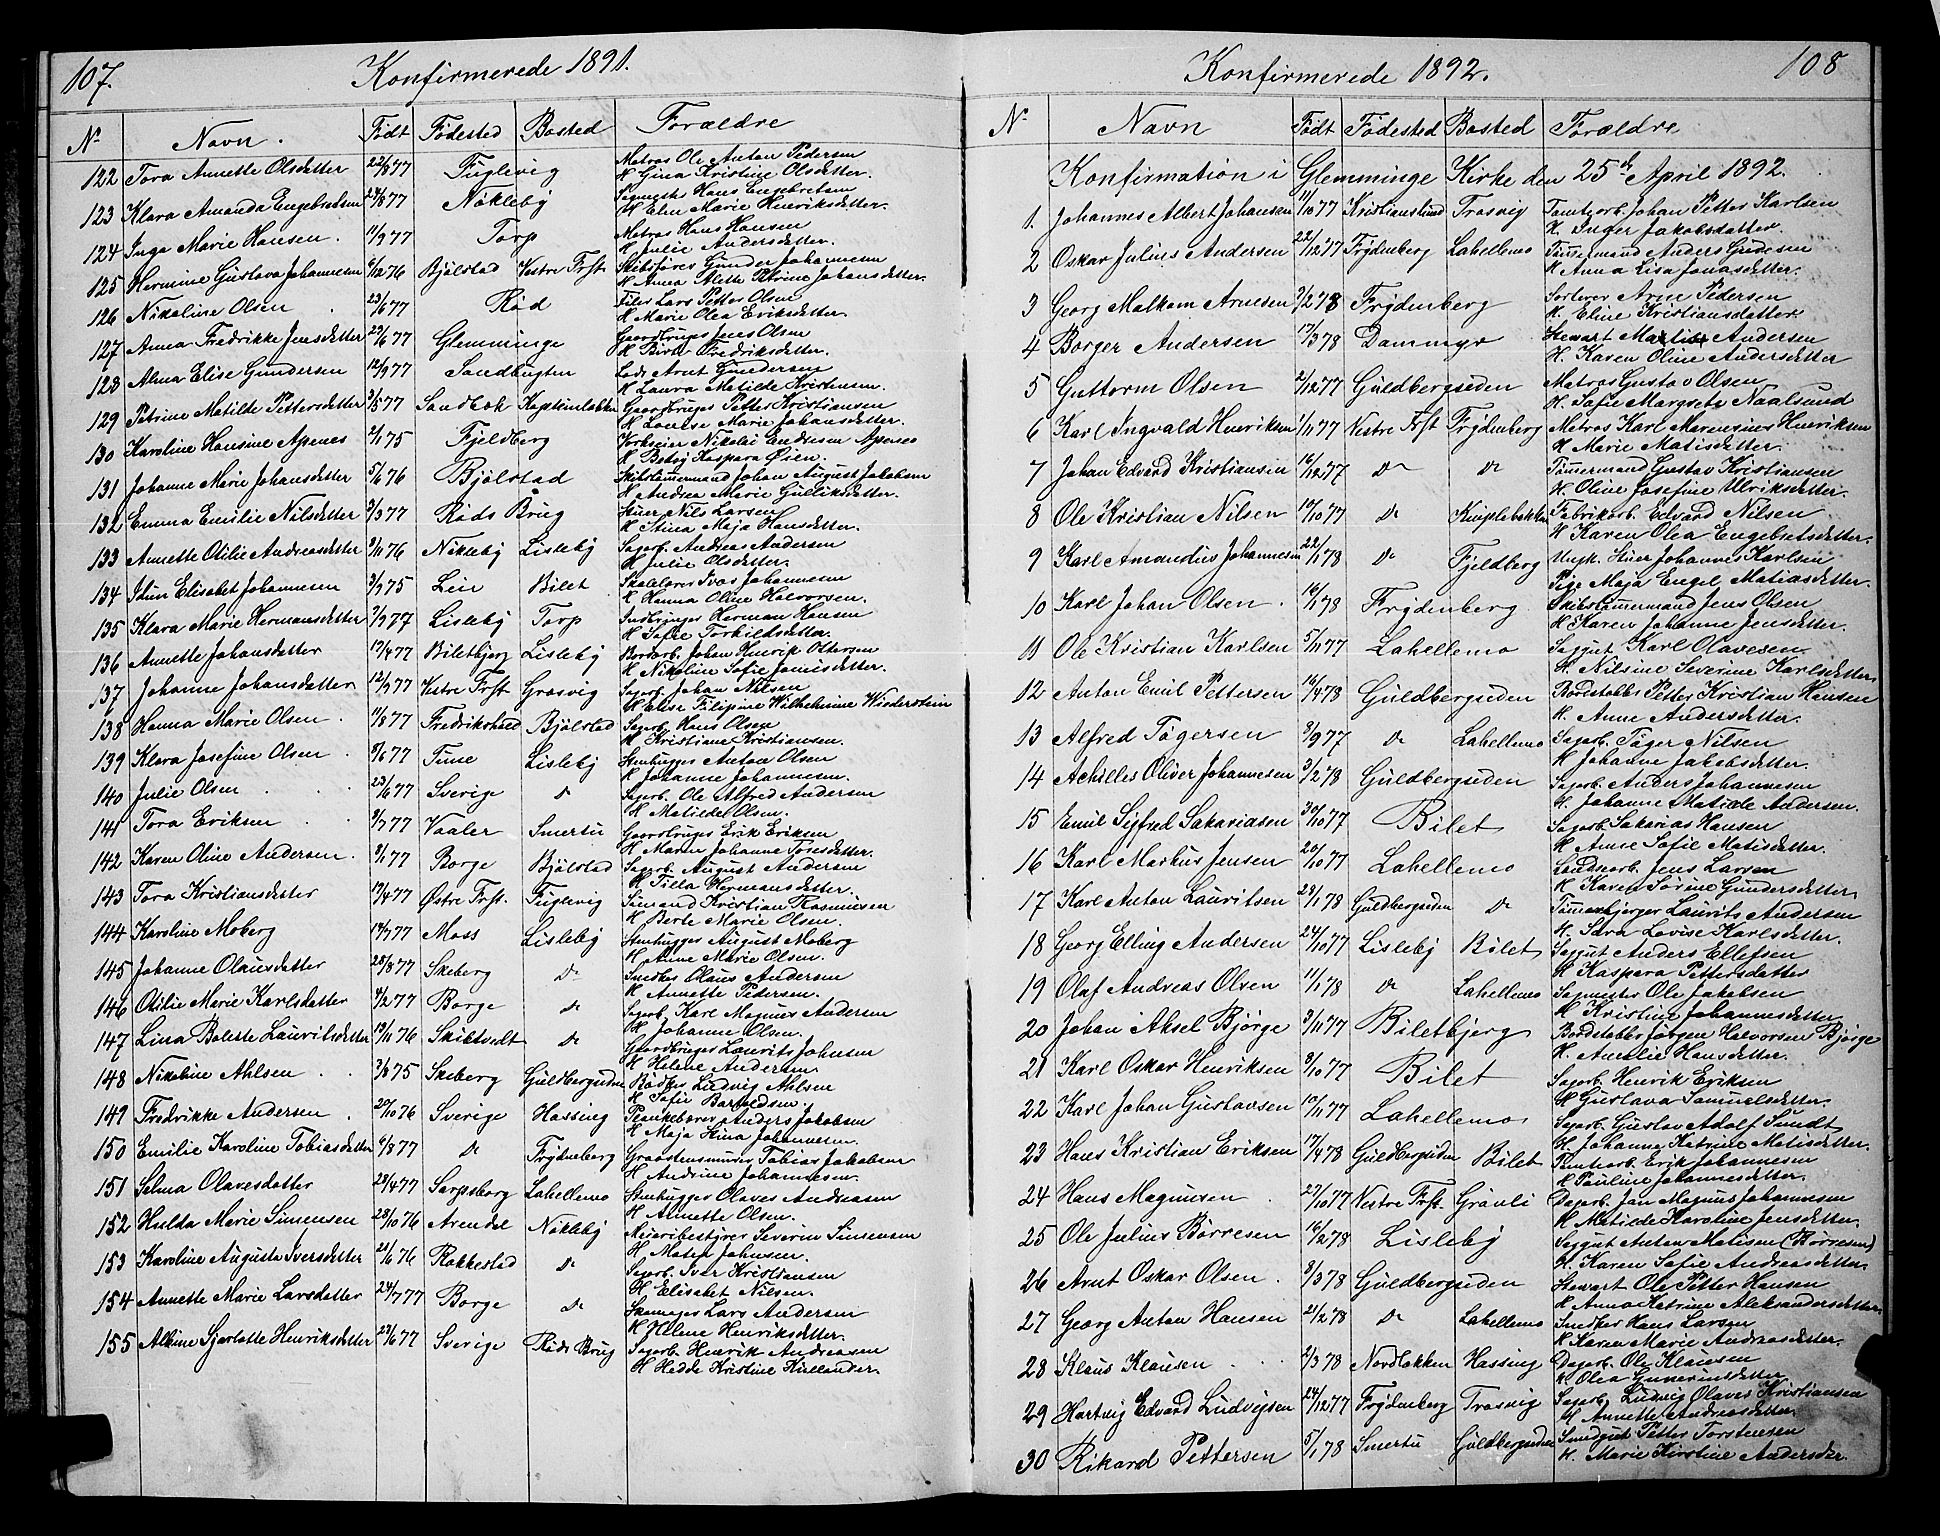 107.
Konfirmerede 1891.
No Navn. Født Fødested Bosted Forældre
122 Tora Annette Olsdetter 22/8 77 Fuglevig Matros Ole Anton Pedersen
H Gina Kristine Olsdetter.
123 Klara Amanda Engebretsen 24/8 77 Nøklebÿ Hans Engebretsen
H Elen Marie Henriksdetter.
124 Inga Marie Hansen. 11/9 77 Torp Matros Hans Hansen
H Julie Andersdetter.
125 Hermine Gustava Johannesen 6/12 76 Bjølstad Vestre Frst. Skibsfører Gunder Johannesen
H Anna Alette Petrine Johansdetter.
126 Nikoline Olsen 23/6 77 Rød Filer Lars Petter Olsen
H Marie Olea Eriksdetter.
127 Anna Fredrikke Jensdetter 23/6 77 Glemminge Jens Olsen
H Birte Fredriksdetter.
128 Alma Elise Gundersen 12/9 77 Sandbugten Lods Arnt Gundersen
H Laura Matilde Kristensen.
129 Petrine Matilde Pettersdetter 3/5 77 Sandbæk Kapteinløkken Petter Kristiansen
H Lovise Marie Johansdetter.
130 Karoline Hansine Apenes 2/1 75 Fjeldberg Nikolai Andresen Apenes
H Betsÿ Kaspara Øien.
131 Johanne Marie Johansdetter 5/1 76 Bjølstad Skibstømermand Johan August Jakobsen
H Andrea Marie Gulliksdetter.
132 Emma Emilie Nilsdetter 3/3 77 Røds Brug Stuer Nils Larsen
H Stina Maja Hansdetter.
133 Annette Otilie Andreasdetter 3/11 76 Nøklebÿ Lislebÿ Sagarb. Andreas Andersen
H Julie Olsdetter.
134 Elisabet Johannesen 3/9 75 Leie Bilet Skolelærer Ivar Johannesen
H Hanna Oline Halvorsen.
135 Klara Marie Hermansdetter 7/9 77 Lislebÿ Torp Herman Hansen
H Sofie Torkildsdetter.
136 Annette Johansdetter 17/4 77 Biletbjerg Lislebÿ Bordarb. Johan Henrik Ottersen
H Nikoline Sofie Jonisdetter.
137 Johanne Johansdetter 12/9 77 Vestre Frst Grøsvig Sagarb. Johan Nilsen
H Elise Filipine Wilhelmine Wiederstein
138 Hanna Marie Olsen. 11/8 77 Fredrikshald Bjølstad Sagarb. Hans Olsen
H Kristiane Kristiansen.
139 Klara Josefine Olsen. 8/6 77 Tune Lislebÿ Stenhugger Anton Olsen
H Johanne Johannesen.
140 Julie Olsen 23/6 77 Sverige do Sagarb. Ole Alfred Andersen
H Matilde Olsen.
141 Tora Eriksen 9/7 77 Vaaler Smertu Gaardbruger Erik Eriksen
H Maren Johanne Tonesdetter.
142 Karen Oline Andersen. 9/1 77 Borge Bjølstad Sagarb. August Andersen
H Tilla Hermansdetter.
143 Tora Kristiansdetter 17/4 77 Østre Frst. Fuglevig Sømand Kristian Rasmussen
H Berte Marie Olsen.
144 Karoline Moberg 17/7 77 Moss Lislebÿ Stenhugger August Moberg
H Marie Olsen.
145 Johanne Olausdetter 28/8 77 Skeberg do Snedker Olaus Andersen
H Annette Pedersen.
146 Otilie Marie Karlsdetter 4/2 77 Borge do Sagarb. Karl Magnus Andersen
H Johanne Olsen.
147 Lina Bolette Lauritsdetter 19/11 76 Skiptvedt do Gaardbruger Laurits Johnsen
H Helene Andersen.
148 Nikoline Ahlsen 3/8 75 Skeberg Guldbergsiden Rødker Ludvig Ahlsen
H Sofie Bartoldsen.
149 Fredrikke Andersen. 20/10 76 Sverige Hassing Plankebærer Anders Jakobsen
H Maja Stina Johannesen.
150 Emilie Karoline Tobiasdetter 6/8 77 do Frÿdenberg Graastensmurer Tobias Jakobsen
H Andrine Johannesen.
151 Selma Olavesdatter 29/4 77 Sarpsborg Lahellemo Stenhugger Olaves Andreasen
H Annette Olsen.
152 Hulda Marie Simensen 28/10 76 Arendal Nøklebÿ Meieribestÿrer Severin Simensen
H Maten Johnsen.
153 Karoline Augusta Iversdetter 21/6 76 Rakkestad do Sagarb. Iver Kristiansen
H Elisabet Nilsen.
154 Annette Marie Larsdetter 24/7 77 Borge do Skomager Lars Andersen
H Helene Henriksdetter.
155 Albine Sjarlotte Henriksdetter 23/6 77 Sverige Røds Brug Sagarb. Henrik Andreasen
H Hedda Kristine Kullander.
Konfirmerede 1892.
108
No Navn Født Fødested Bosted Forældre
Konfirmation i Glemminge Kirke den 25de April 1892.
1. Johannes Albert Johansen 11/10 77 Kristianslund Trosvig Tomtearb. Johan Petter Karlsen
H. Inger Jakobsdatter.
2 Oskar Julius Andersen 22/12 77 Frÿdenberg Lahellemo Tømmermand Anders Gudesen
H Anna Lisa Jonasdetter.
3 Georg Malkom Arnesen 9/2 78 Frÿdenberg Sorterer Arne Pedersen
H. Eline Kristiansdetter.
4 Borger Andersen 17/3 78 Dammÿr Stewart Andersen
H. Karen Oline Andersdetter
5 Guttorm Olsen 2/12 77 Guldbergsiden Matros Gustav Olsen
H. Sofie Margrete Naalsund
6 Karl Ingvald Henriksen 1/11 77 Vestre Frst Frÿdenberg Matros Karl Marenius Henriksen
H Marie Matisdetter.
7 Johan Edvard Kristiansen 16/12 77 do do Tømmermand Gustav Kristiansen
H. Oline Josefine Ulriksdetter.
8 Ole Kristian Nilsen 19/10 77 do Kniplebakken Fabrikarb. Edvard Nilsen
H Karen Olea Engebretsdetter.
9 Karl Amandus Johannesen 22/1 78 do Fjeldberg Ungk. Stuer Johannes Karlsen
Pige Maja Engel Matiasdetter.
10 Karl Johan Olsen. 16/1 78 Frÿdenberg. Skibstømermand Jens Olsen
H Karen Johanne Jensdetter.
11 Ole Kristian Karlsen 5/11 77 Lahellemo Saggut Karl Olavesen
H Nilsine Severine Karlsdetter.
12 Anton Emil Pettersen 16/4 78 Guldbergsiden Bordstabler Petter Kristian Hansen
H. Anne Andersdetter.
13 Alfred Tøgersen 8/9 77 do Lahellemo Sagarb. Tøger Nilsen
H Johanne Jakobsdetter.
14 Achilles Oliver Johannesen 3/2 78 Guldbergsiden Sagarb. Anders Johannesen
H. Johanne Matilde Andersen.
15 Emil Sigfred Sakariasen 30/10 77 Bilet Sagarb. Sakarias Hansen
H Anne Sofie Matisdetter.
16 Karl Markus Jensen 20/10 77 Lahellemo Landsarb. Jens Larsen
H Karen Sørine Gundersdetter.
17 Karl Anton Lauritsen 28/1 78 Guldbergsiden do Tømerbjerger Laurits Andersen
H. Sara Lovise Karlsdetter.
18 Georg Elling Andersen 24/10 77 Lislebÿ Bilet Saggut Anders Ellefsen
H Kaspara Pettersdatter
19 Olaf Andreas Olsen 11/1 78 do Lahellemo Sagmester Ole Jakobsen
H Kristine Johannesdetter
20 Johan Aksel Bjørge 3/11 77 Biletbjerg Bordstabler Jørgen Halvorsen Bjørge
H. Aurelie Hansdetter.
21 Karl Oskar Henriksen 8/10 77 Bilet Sagarb. Henrik Eriksen
H Gustava Samuelsdetter.
22 Karl Johan Gustavsen 10/11 77 Lahellemo Sagarb. Gustav Adolf Sundt
H. Johanne Katrine Matisdetter.
23 Hans Kristian Eriksen 17/4 78 Guldbergsiden Bilet Tomtearb. Erik Johannesen
H Pauline Johannesdetter.
24 Hans Magnusen 27/10 77 Vestre Frst. Gravli Dagarb. Jan Magnus Johannesen
H Matilde Karoline Jensdetter.
25 Ole Julius Børresen 16/2 78 Lislebÿ Saggut Anton Matisen (Børresen)
H. Karen Sofie Andreasdetter.
26 Arnt Oskar Olsen. 8/3 78 Guldbergsiden Stewart Ole Petter Hansen
H Anna Katrine Aleksandersdetter
27 Georg Anton Hansen 21/2 78 do Lahellemo Snedker Hans Larsen
H Karen Marie Andreasdetter.
28 Klaus Klausen 2/3 78 Nordløkken Hassing Dagarb. Ole Klausen
H Olea Gunneriusdetter.
29 Hartvig Edvard Ludvigsen 24/12 77 Frÿdenberg Trosvig Sagarb. Ludvig Olaves Kristiansen
H Annette Andreasdetter.
30 Rikard Pettersen 5/1 78 Smertu Guldbergsiden Smedgut Petter Torstensen
H. Marie Kirstine Andersdtr.